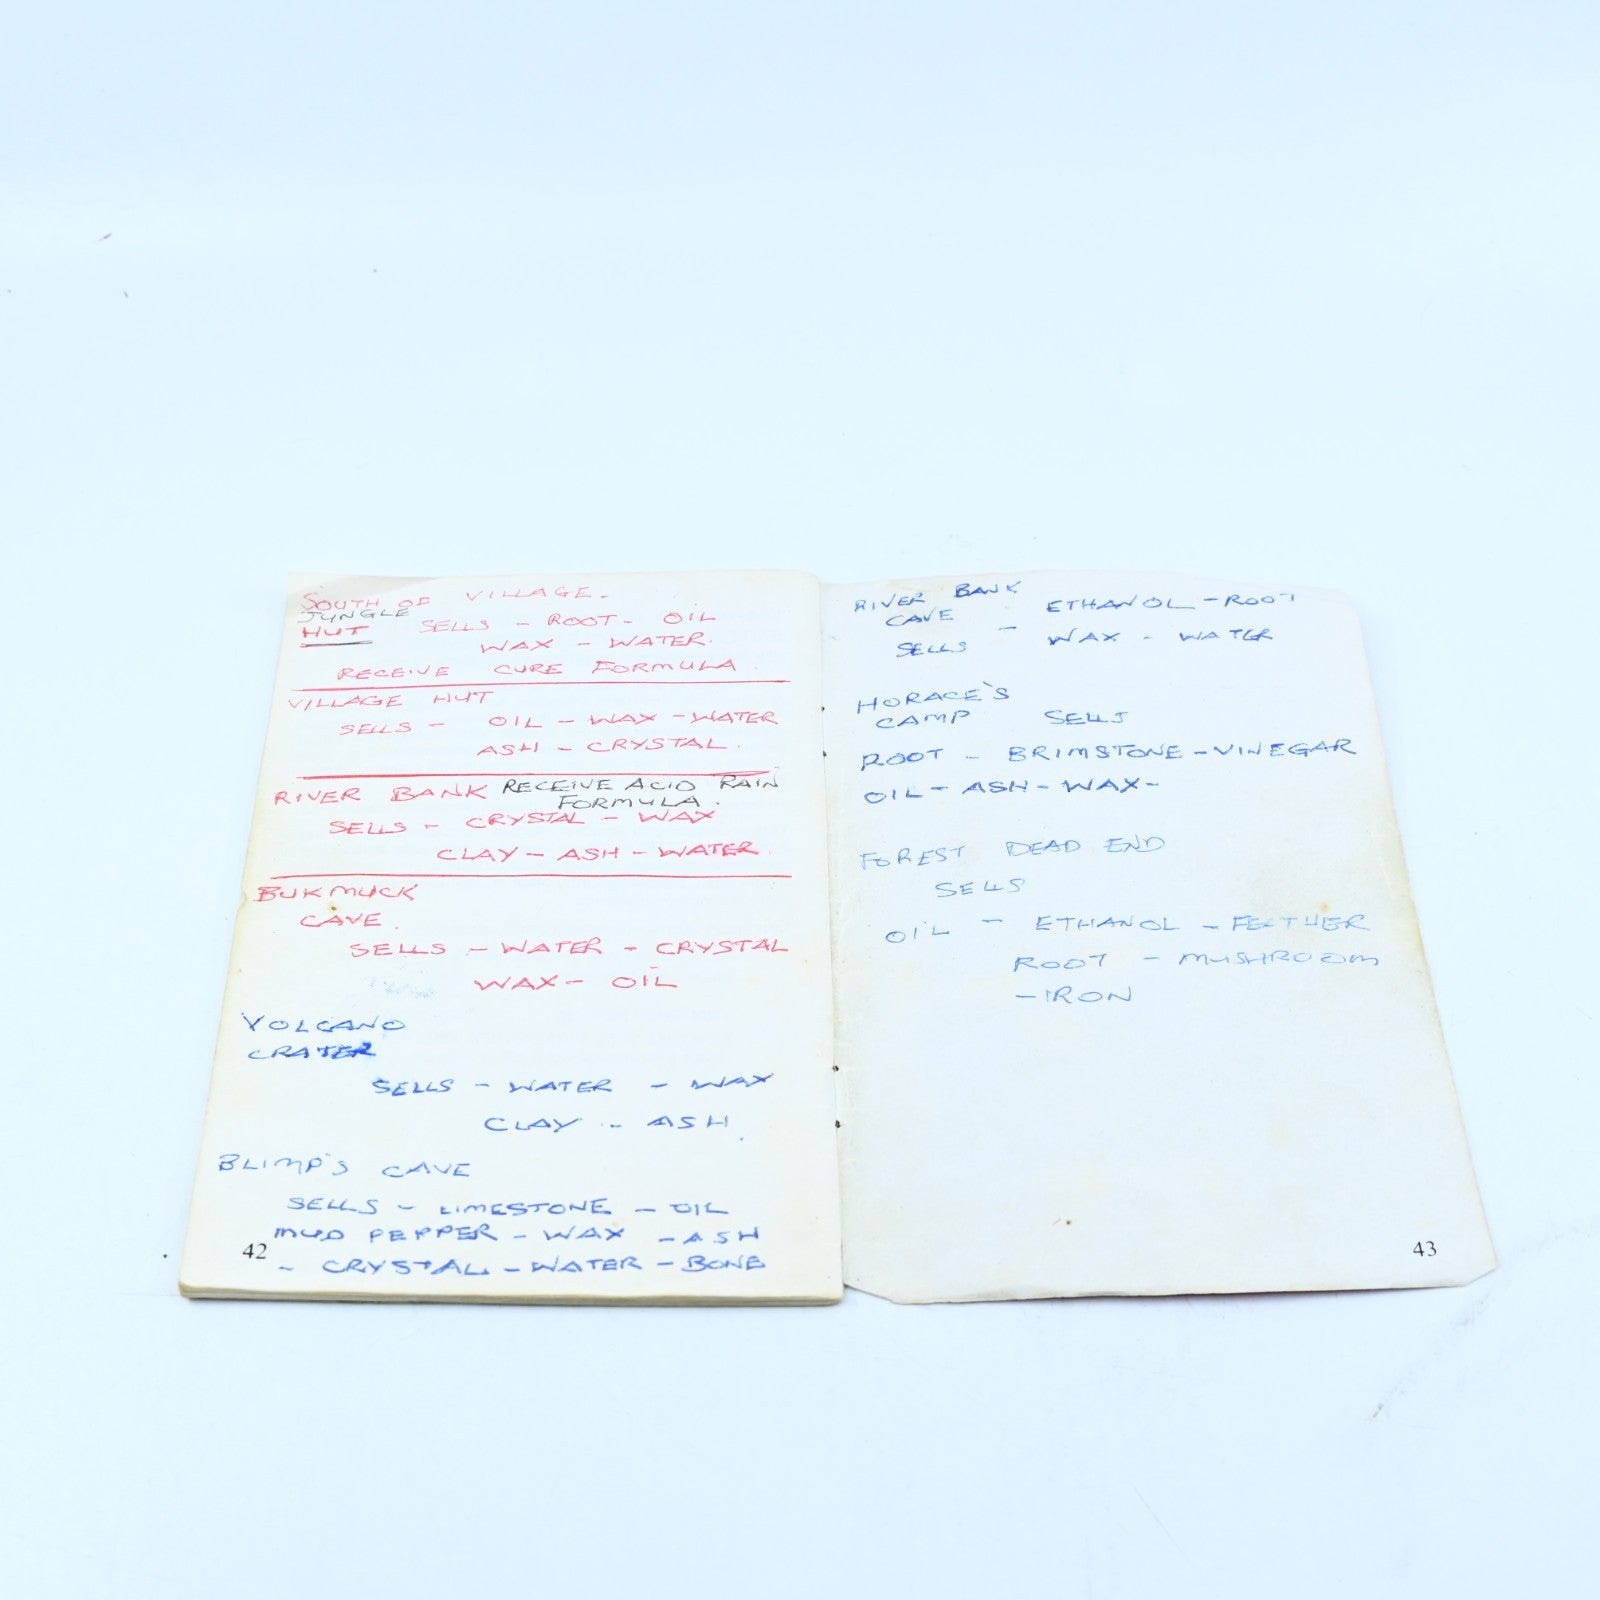 SOUTH OF VILLAGE.
JUNGLE
HUT SELLS - ROOT - OIL
WAX - WATER.
RECEIVE CURE FORMULA.
VILLAGE HUT
SELLS - OIL - WAX - WATER
ASH - CRYSTAL.
RIVER BANK RECEIVE ACID RAIN
FORMULA.
SELLS - CRYSTAL - WAX
CLAY - ASH - WATER.
BUKMUCK
CAVE.
SELLS - WATER - CRYSTAL
WAX - OIL
VOLCANO
CRATER
SELLS - WATER - WAX
CLAY - ASH.
BLIMP'S CAVE
SELLS - LIMESTONE - OIL
MUD PEPPER - WAX - ASH
- CRYSTAL - WATER - BONE
42
RIVER BANK
CAVE - ETHANOL - ROOT
SELLS WAX - WATER
HORACE'S
CAMP SELLS
ROOT - BRIMSTONE - VINEGAR
OIL - ASH - WAX -
FOREST DEAD END
SELLS
OIL - ETHANOL - FEATHER
ROOT - MUSHROOM
- IRON
43